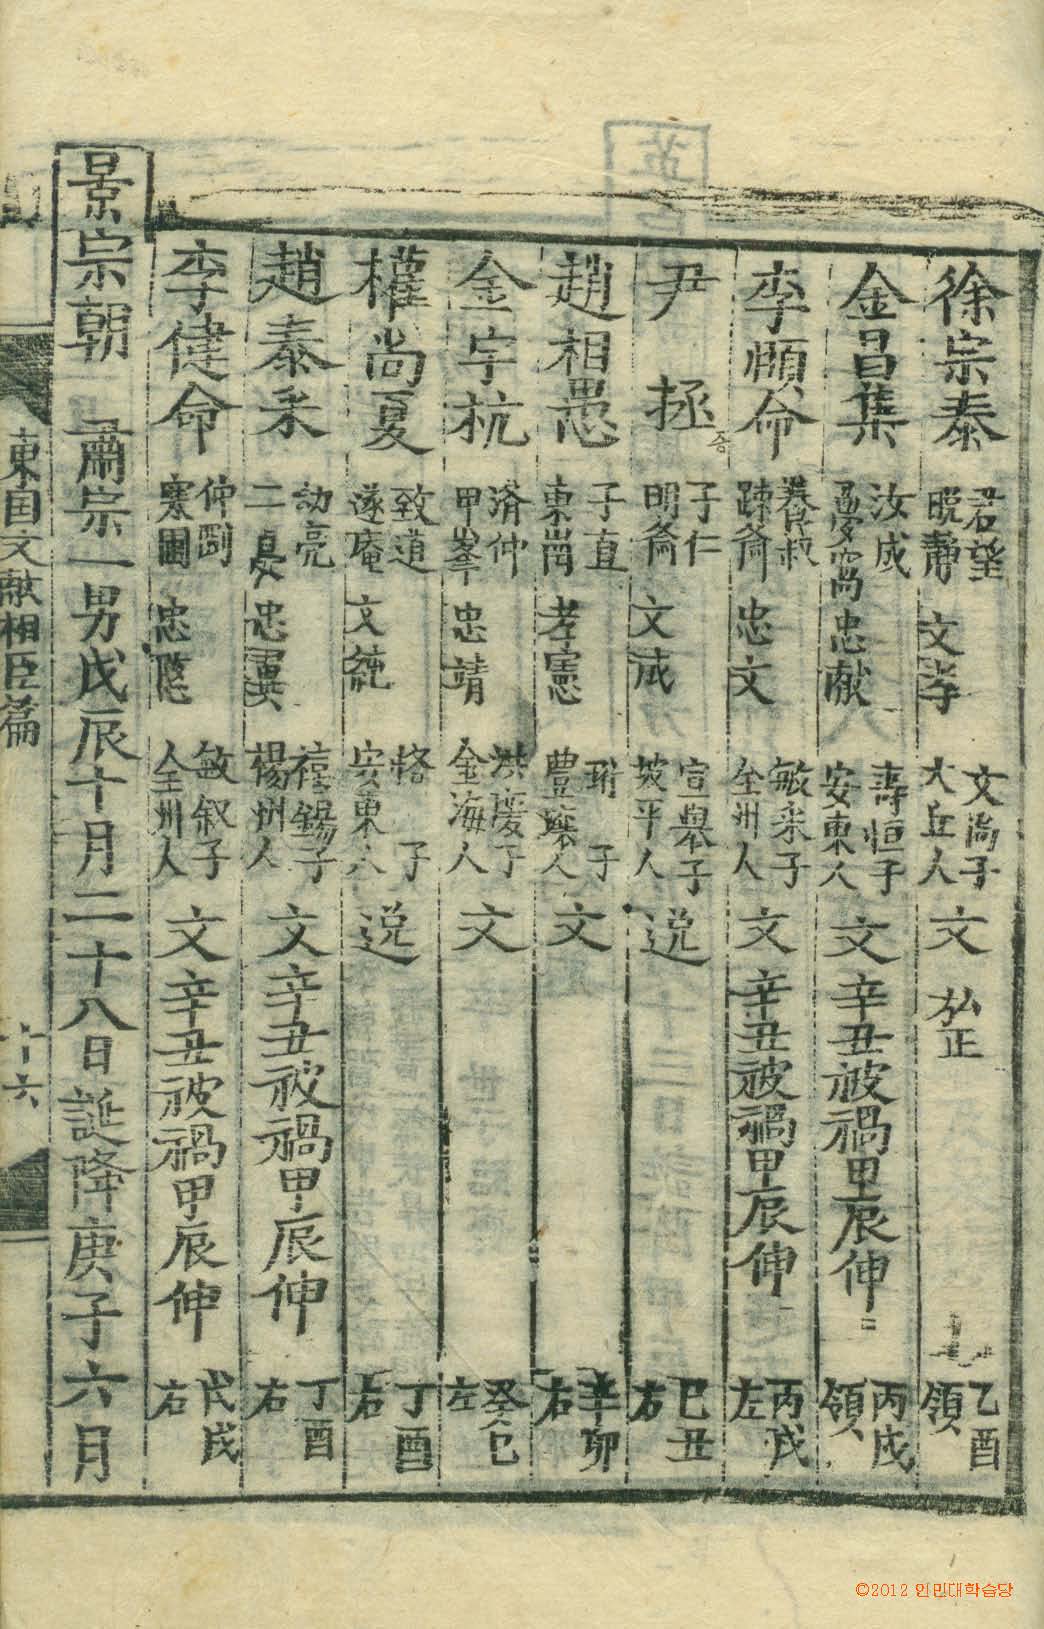 徐宗泰 君望 晩靜 文孝 文尙子 大丘人 文 弘正 七 乙酉 領
金昌集 汝成 夢窩 忠献 壽恒子 安東人 文 辛丑被禍甲辰伸 丙戌 領
李頥命 養叔 踈齋 忠文 敏采子 全州人 文 辛丑被禍甲辰伸 丙戌 左
尹拯 증 子仁 明齋 文成 宣擧子 坡平人 逸 己丑 右
趙相愚 子直 東岡 孝憲 珩子 豊壤人 文 辛卯 右
金宇杭 濟仲 甲峯 忠靖 洪慶子 金海人 文 癸巳 左
權尙夏 致道 遂庵 文純 格子 安東人 逸 丁酉 右
趙泰采 幼亮 二憂 忠翼 禧錫子 楊州人 文 辛丑被禍甲辰伸 丁酉 右
李健命 仲剛 寒圃 忠愍 敏叙子 全州人 文 辛丑被禍甲辰伸 戊戌 右
景宗朝 肅宗一男戊辰十月二十八日誕降庚子六月
東国文献相臣篇 十六
©2012 인민대학습당